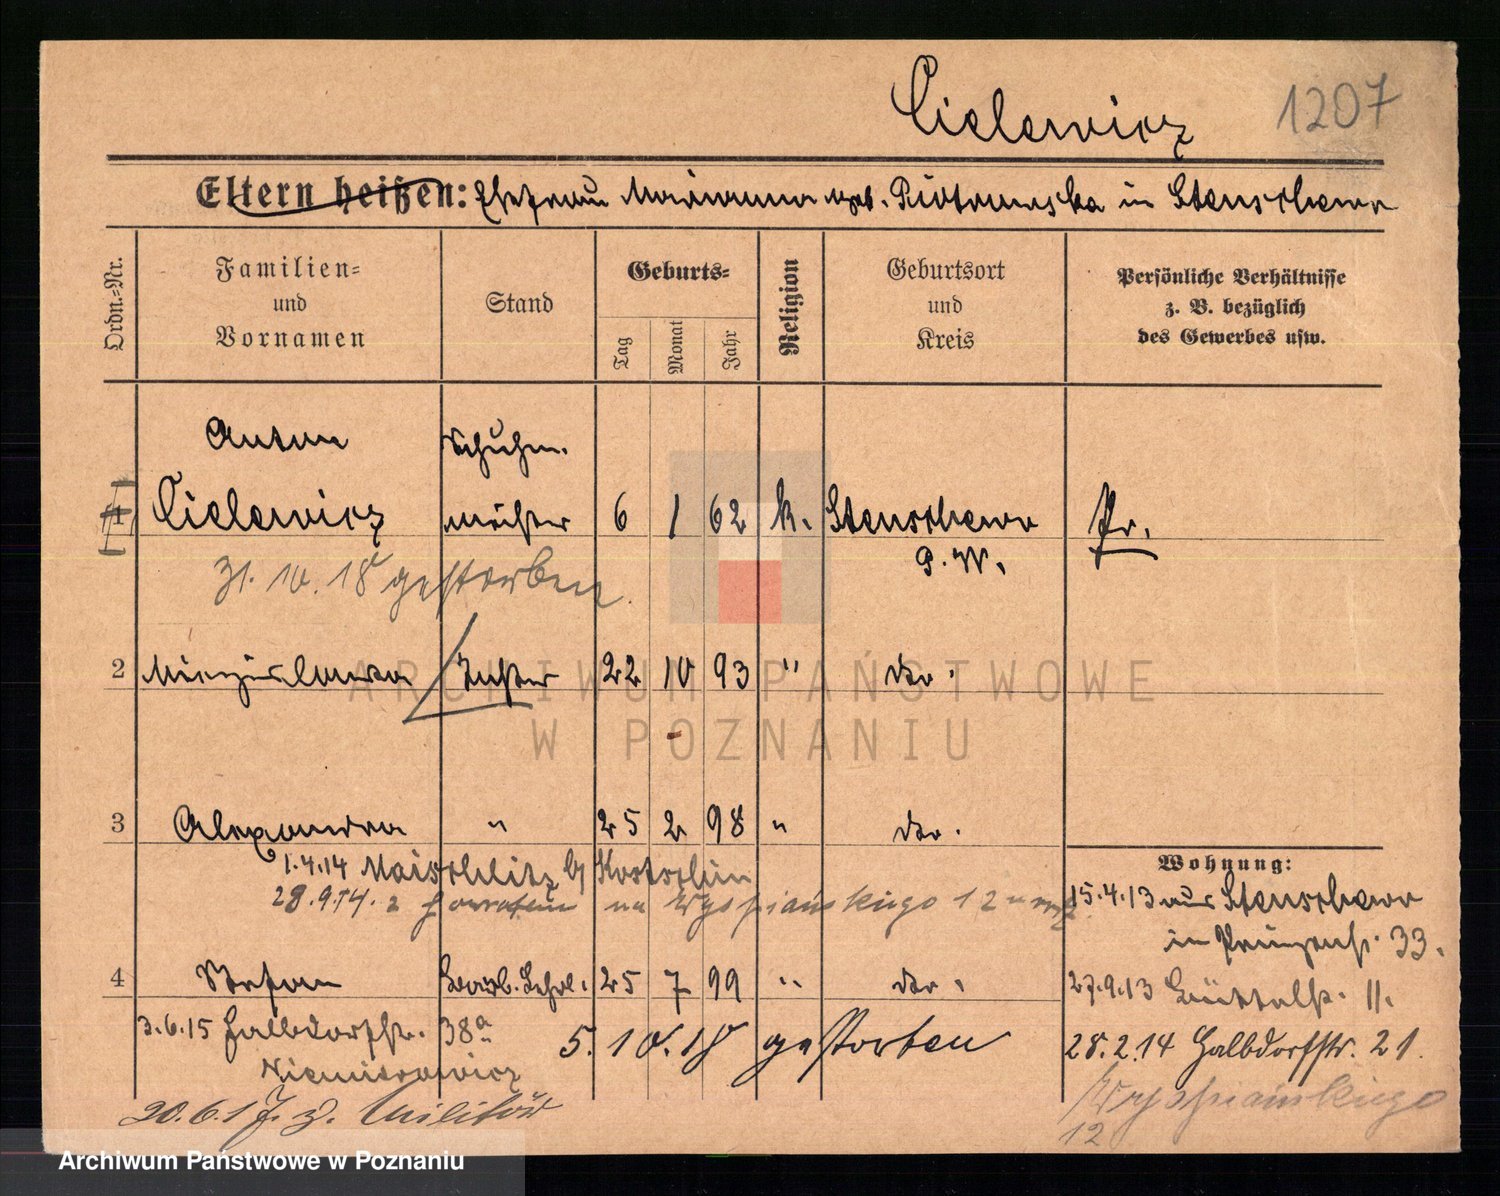 Cielewicz 1207
Eltern heißen: Ehefrau Marianna geb. Piotrowska in Stenschewo
Ordn.-Nr.
Familien-
und
Vornamen
Stand
Geburts-
Tag
Monat
Jahr
Religion
Geburtsort
und
Kreis
Persönliche Verhältnisse
z. B. bezüglich
des Gewerbes usw.
Anton Schuhm.
1 Cielewicz meister 6 1 62 k. Stenschewo Pr.
P. W.
31. 10. 18 gestorben.
2 Mieczislawa Tochter 22 10 93 " do.
3 Alexandra " 25 2 98 " do.
1.4.14 Maischlitz b/ Kostschin
28.9.14. z na Wyspiańskiego 12
Wohnung:
15.4.13 aus Stenschewo
in Prinzenstr. 33.
4 Stefan Lehrl. 25 7 99 " do.
27.9.13 11.
3.6.15 Halbdorfstr. 38a
5. 10. 18 gestorben
28.2.14 Halbdorfstr. 21.
Niemcewicz
20.6.17. z. Militär
Wyspiańskiego
12
ARCHIWUM PAŃSTWOWE
W POZNANIU
Archiwum Państwowe w Poznaniu